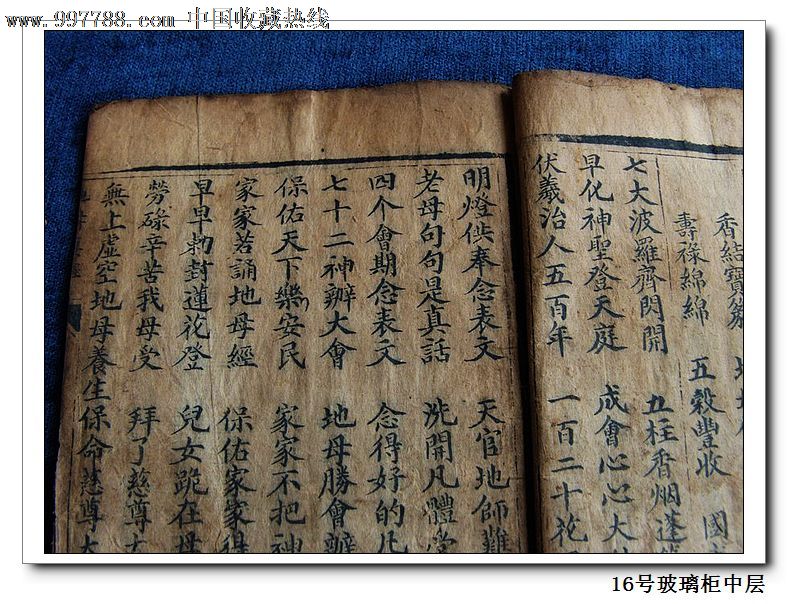 www.997788.com 中国收藏热线
香結寶篆
壽祿綿綿 五穀豐收 國
七大波羅齊閃開 五柱香烟蓬
早化神聖登天庭 成會心心大
伏羲治人五百年 一百二十花
明燈供奉念表文 天官地師難
老母句句是真話 洗開凡體當
四个會期念表文 念得好的凡
七十二神辦大會 地母勝會辦
保佑天下樂安民 家家不把神
家家若誦地母經 保佑家家得
早早勅封蓮花登 兒女跪在母
勞碌辛苦我母受 拜了慈尊
無上虛空地母養生保命慈尊大
16号玻璃柜中层